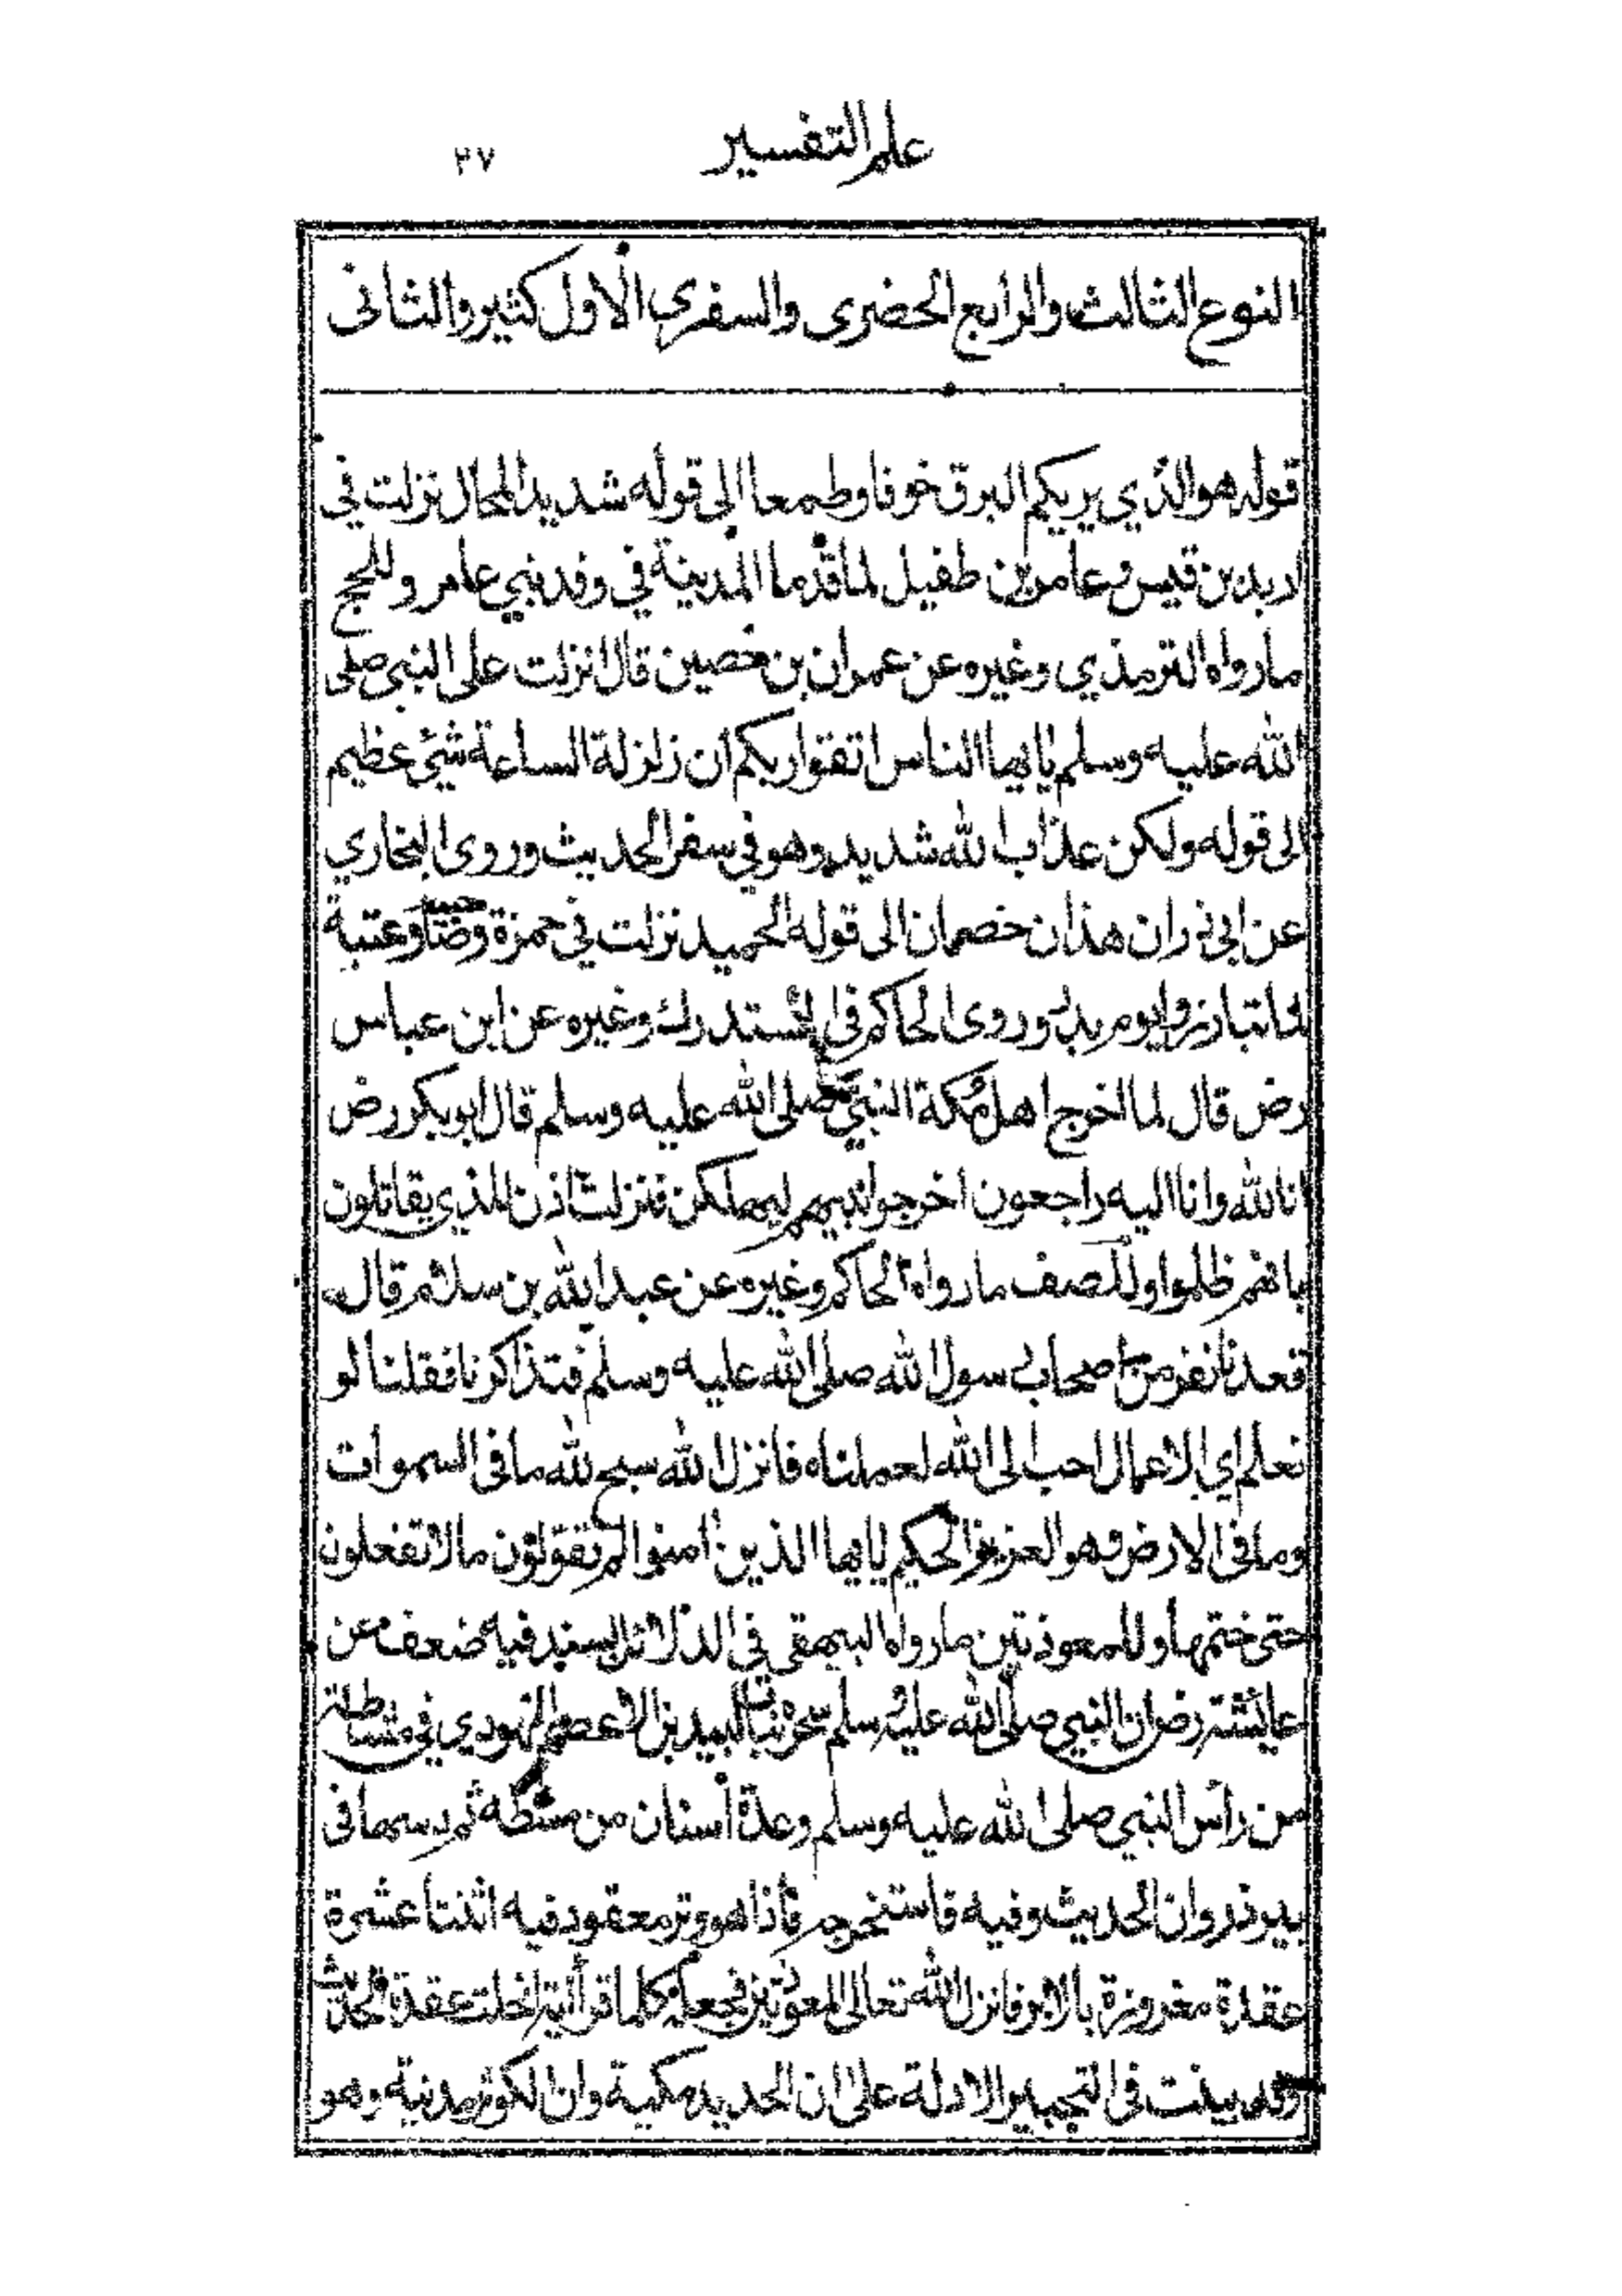 علم التفسير ٢٧
النوع الثالث والرابع الحضرى والسفرى الاول كثير والثانى
قوله هو الذي يريكم البرق خوفا وطمعا الى قوله شديد المحال نزلت في
اربد بن قيس وعامر بن طفيل لما قدما المدينة في وفد بني عامر وللحج
ما رواه الترمذي وغيره عن عمران بن حصين قال انزلت على النبي صلى
الله عليه وسلم يا ايها الناس اتقوا ربكم ان زلزلة الساعة شئ عظيم
الى قوله ولكن عذاب الله شديد وهو في سفر الحديث وروى البخاري
عن ابي ذر ان هذان خصمان الى قوله الحميد نزلت في حمزة وصاحبيه وعتبة
لما تبارزوا يوم بدر وروى الحاكم في المستدرك وغيره عن ابن عباس
رض قال لما اخرج اهل مكة النبي صلى الله عليه وسلم قال ابو بكر رض
انا لله وانا اليه راجعون اخرجوا نبيهم ليهلكن فنزلت اذن للذي يقاتلون
بانهم ظلموا وللصف ما رواه الحاكم وغيره عن عبد الله بن سلام قال
قعدنا نفر من اصحاب رسول الله صلى الله عليه وسلم فتذاكرنا فقلنا لو
نعلم اي الاعمال احب الى الله لعملناه فانزل الله سبح لله ما فى السموات
وما فى الارض وهو العزيز الحكيم يا ايها الذين امنوا لم تقولون ما لا تفعلون
حتى ختمها وللمعوذتين ما رواه البيهقى في الدلائل بسند فيه ضعف عن
عائشة رض ان النبي صلى الله عليه وسلم سحره لبيد بن الاعصم اليهودي في مشاطة
من رأس النبي صلى الله عليه وسلم وعدة أسنان من مشطه ثم دسها فى
بير ذروان الحديث وفيه فاستخرجه فاذا هو وتر معقود فيه اثنتا عشرة
عقدة مغروزة بالابر فانزل الله تعالى المعوذتين فجعل كلما قرأ اية انحلت عقدة الحديث
وقد بينت فى التحبير الادلة على ان الحديد مكية وان الكوثر مدنية وهو